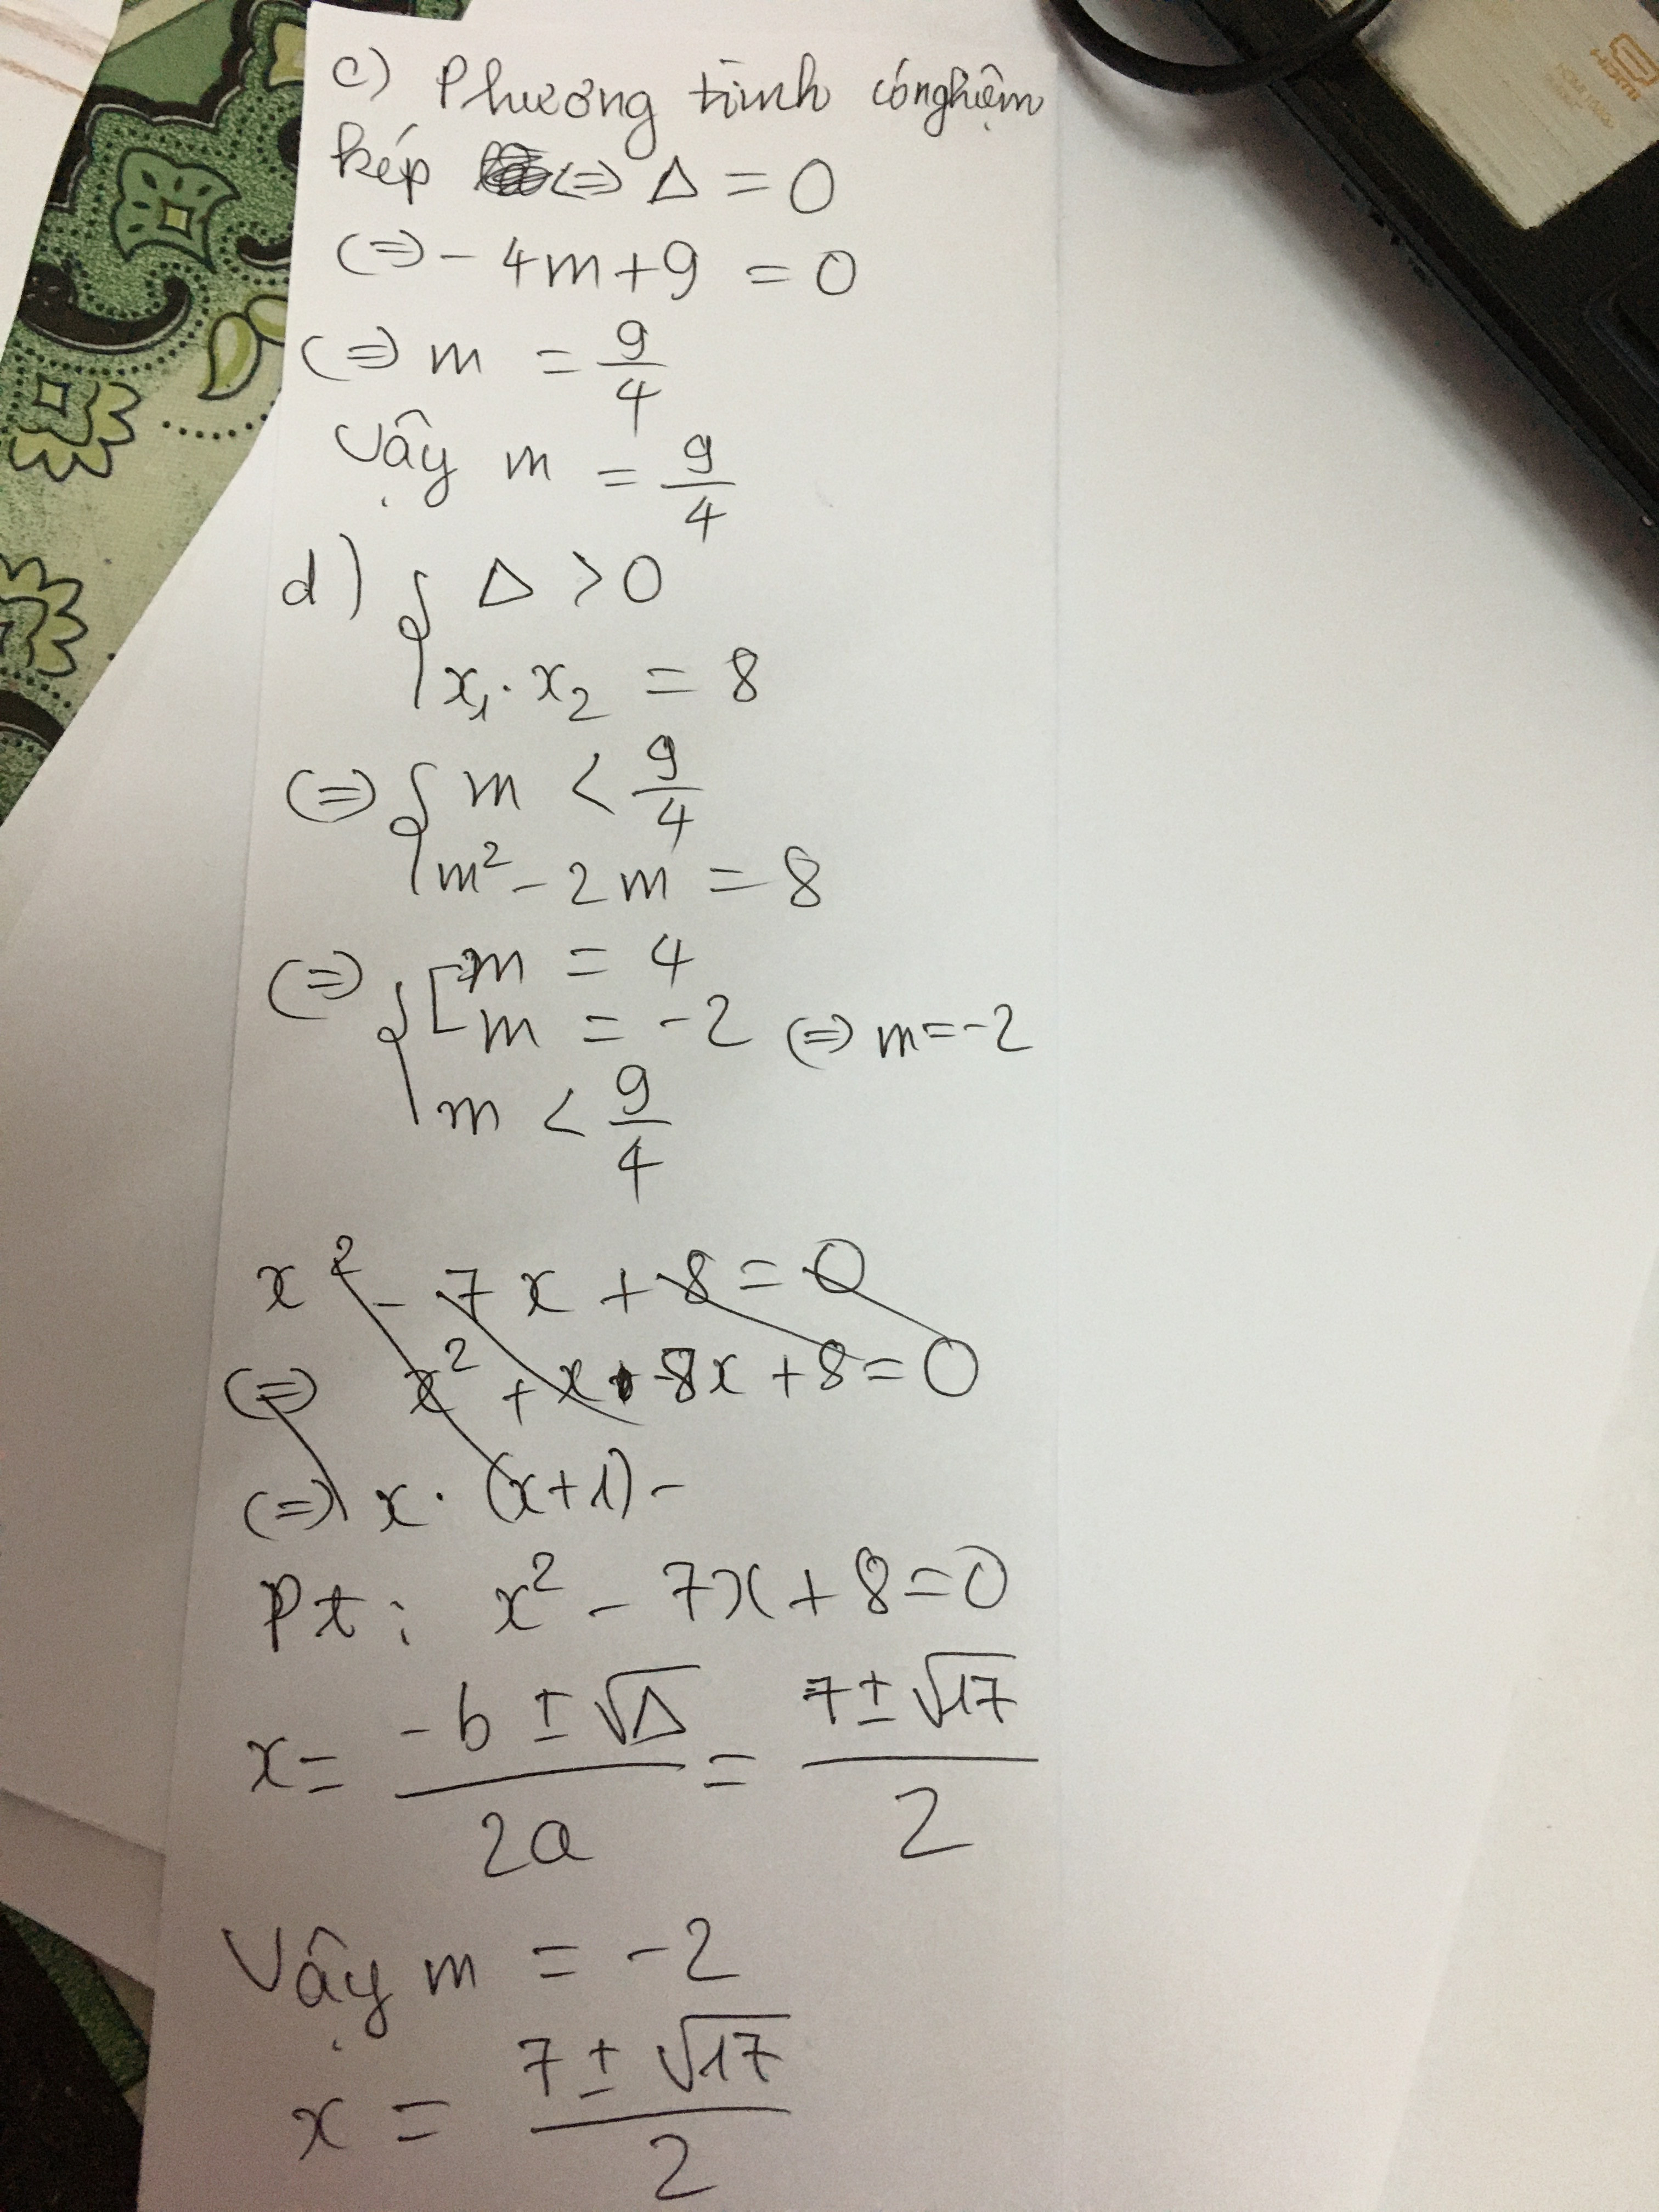 c) Phương trình có nghiệm
kép <=> Δ = 0
<=> - 4m + 9 = 0
<=> m = 9/4
Vậy m = 9/4
d) { Δ > 0
x₁ . x₂ = 8
<=> { m < 9/4
m² - 2m = 8
<=> { [ m = 4
m = -2 <=> m = -2
m < 9/4
x² - 7x + 8 = 0
<=> x² + x - 8x + 8 = 0
<=> x . (x + 1) -
Pt : x² - 7x + 8 = 0
x = (-b ± √Δ)/2a = (7 ± √17)/2
Vậy m = -2
x = (7 ± √17)/2